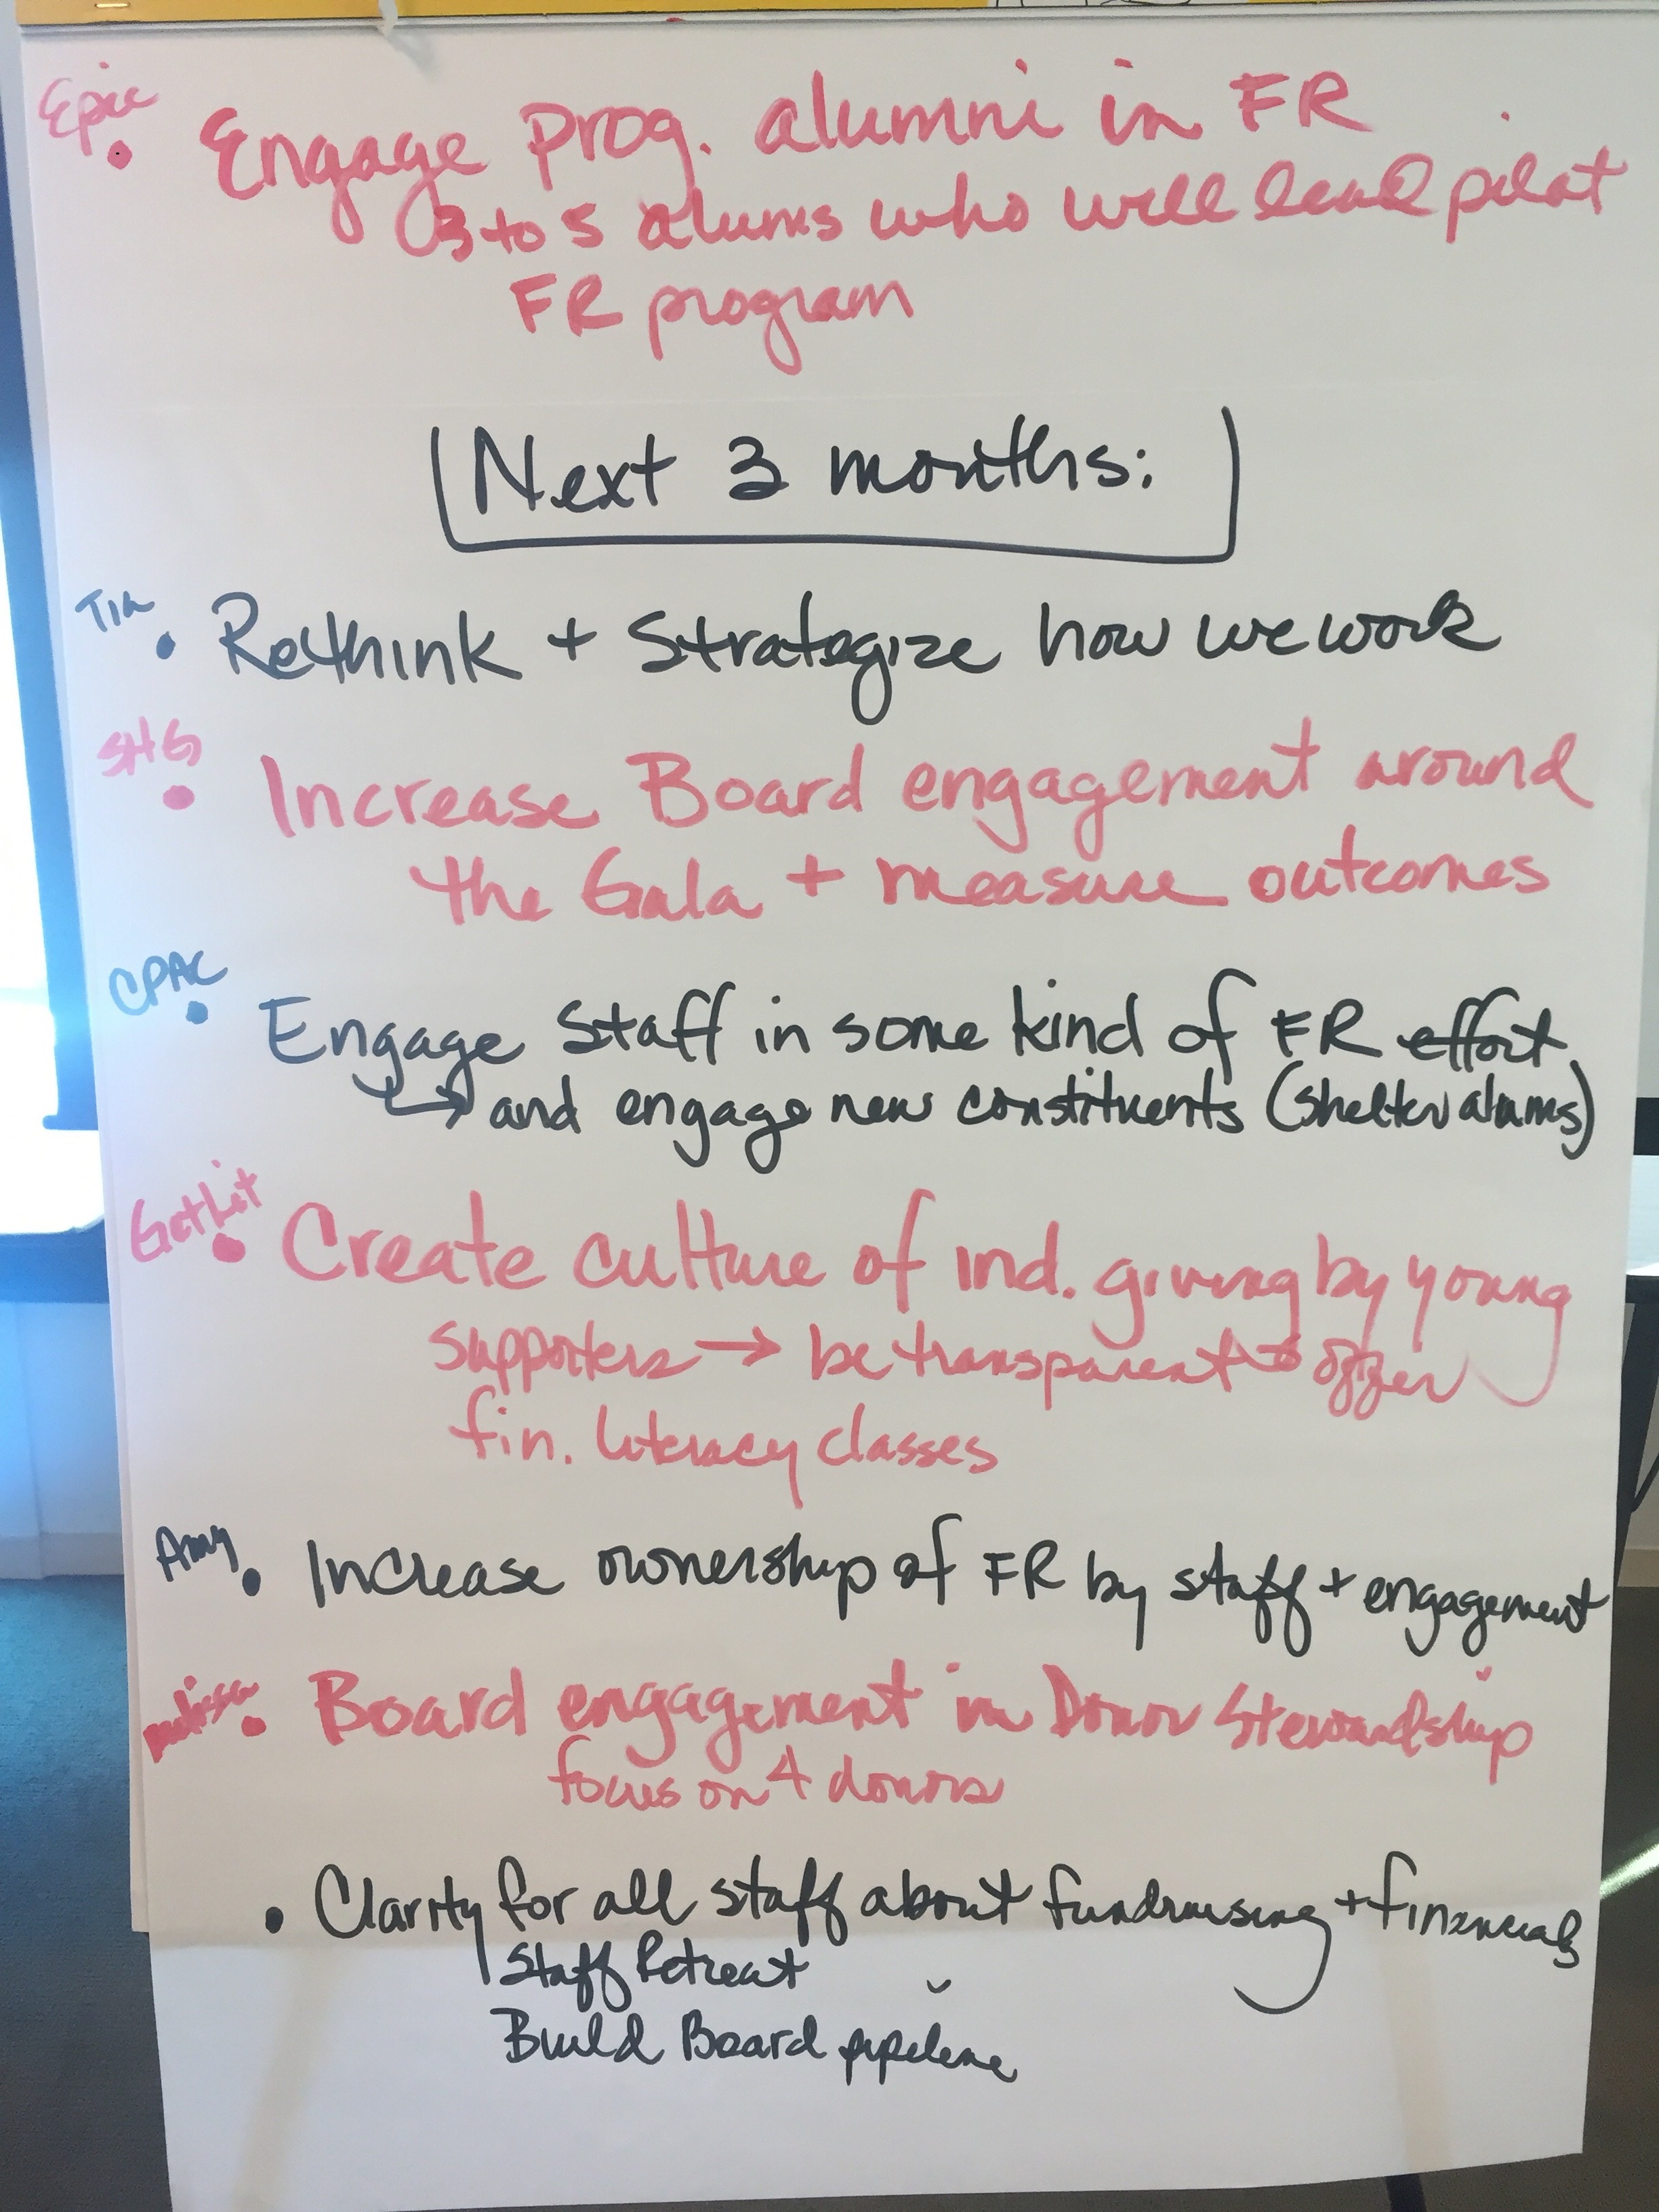 Epic
• Engage prog. alumni in FR
3 to 5 alums who will lead pilot
FR program
Next 3 months:
Tia
• Rethink + Strategize how we work
SHG
• Increase Board engagement around
the Gala + measure outcomes
CPAC
• Engage Staff in some kind of FR effort
↳ and engage new constituents (shelter alums)
GetLit
• Create culture of ind. giving by young
supporters → be transparent → offer
fin. literacy classes
Amy
• Increase ownership of FR by staff + engagement
Melissa
• Board engagement in Donor Stewardship
focus on 4 donors
• Clarity for all staff about fundraising + financials
Staff Retreat
Build Board pipeline